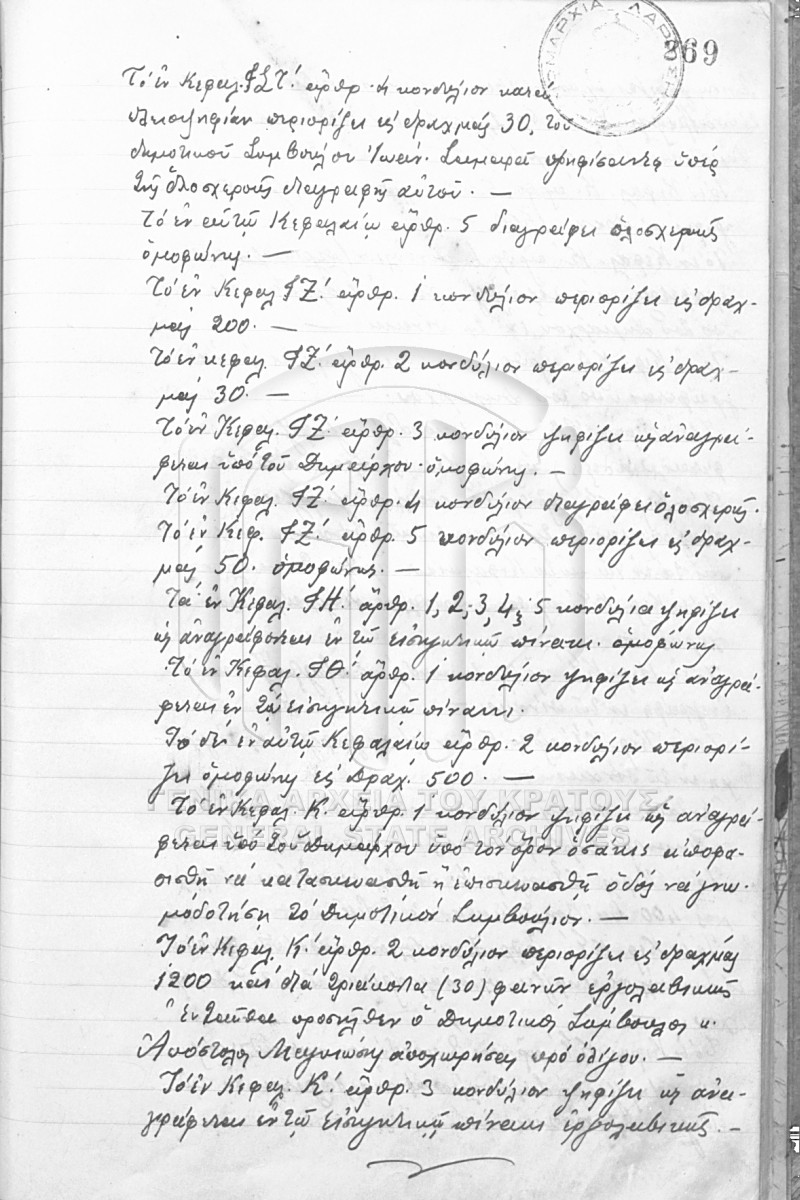 369
Τό ἐν Κεφαλ. ΙΣΤ΄. ἄρθρ. 4 κονδύλιον κατά
πλειοψηφίαν περιορίζει εἰς δραχμάς 30, τοῦ
δημοτικοῦ Συμβούλου Ἰωάν. Σαμαρᾶ ψηφίσαντος ὑπέρ
τῆς ὁλοσχεροῦς διαγραφῆς αὐτοῦ. —
Τό ἐν αὐτῷ Κεφαλαίῳ ἄρθρ. 5 διαγράφει ὁλοσχερῶς
ὁμοφώνως. —
Τό ἐν Κεφαλ. ΙΖ΄. ἄρθρ. 1 κονδύλιον περιορίζει εἰς δραχ-
μάς 200. —
Τό ἐν κεφαλ. ΙΖ΄. ἄρθρ. 2 κονδύλιον περιορίζει εἰς δραχ-
μάς 30. —
Τό ἐν Κεφαλ. ΙΖ΄. ἄρθρ. 3 κονδύλιον ψηφίζει ὡς ἀναγρά-
φεται ὑπό τοῦ Δημάρχου ὁμοφώνως. —
Τό ἐν Κεφαλ. ΙΖ΄. ἄρθρ. 4 κονδύλιον διαγράφει ὁλοσχερῶς.
Τό ἐν Κεφ. ΙΖ΄. ἄρθρ. 5 κονδύλιον περιορίζει εἰς δραχ-
μάς 50. ὁμοφώνως. —
Τά ἐν Κεφαλ. ΙΗ΄. ἄρθρ. 1, 2, 3, 4, 5 κονδύλια ψηφίζει
ὡς ἀναγράφονται ἐν τῷ εἰσηγητικῷ πίνακι ὁμοφώνως
Τό ἐν Κεφαλ. ΙΘ΄. ἄρθρ. 1 κονδύλιον ψηφίζει ὡς ἀναγρά-
φεται ἐν τῷ εἰσηγητικῷ πίνακι.
Τό δέ ἐν αὐτῷ Κεφαλαίῳ ἄρθρ. 2 κονδύλιον περιορί-
ζει ὁμοφώνως εἰς Δραχ. 500. —
Τό ἐν Κεφαλ. Κ. ἄρθρ. 1 κονδύλιον ψηφίζει ὡς ἀναγρά-
φεται ὑπό τοῦ Δημάρχου ὑπό τόν ὅρον ὁσάκις ἀποφα-
σισθῇ νά κατασκευασθῇ ἤ ἐπισκευασθῇ ὁδός νά γνω-
μοδοτήσῃ τό Δημοτικόν Συμβούλιον. —
Τό ἐν Κεφαλ. Κ.΄ ἄρθρ. 2 κονδύλιον περιορίζει εἰς δραχμάς
1200 καί διά τριάκοντα (30) φανῶν ἐργολαβικῶς
Ἐνταῦθα προσῆλθεν ὁ Δημοτικός Σύμβουλος κ.
Ἀπόστολος ἀποχωρήσας πρό ὀλίγου. —
Τό ἐν Κεφαλ. Κ΄. ἄρθρ. 3 κονδύλιον ψηφίζει ὡς ἀνα-
γράφεται ἐν τῷ εἰσηγητικῷ πίνακι ἐργολαβικῶς. —
ΓΕΝΙΚΑ ΑΡΧΕΙΑ ΤΟΥ ΚΡΑΤΟΥΣ
GENERAL STATE ARCHIVES